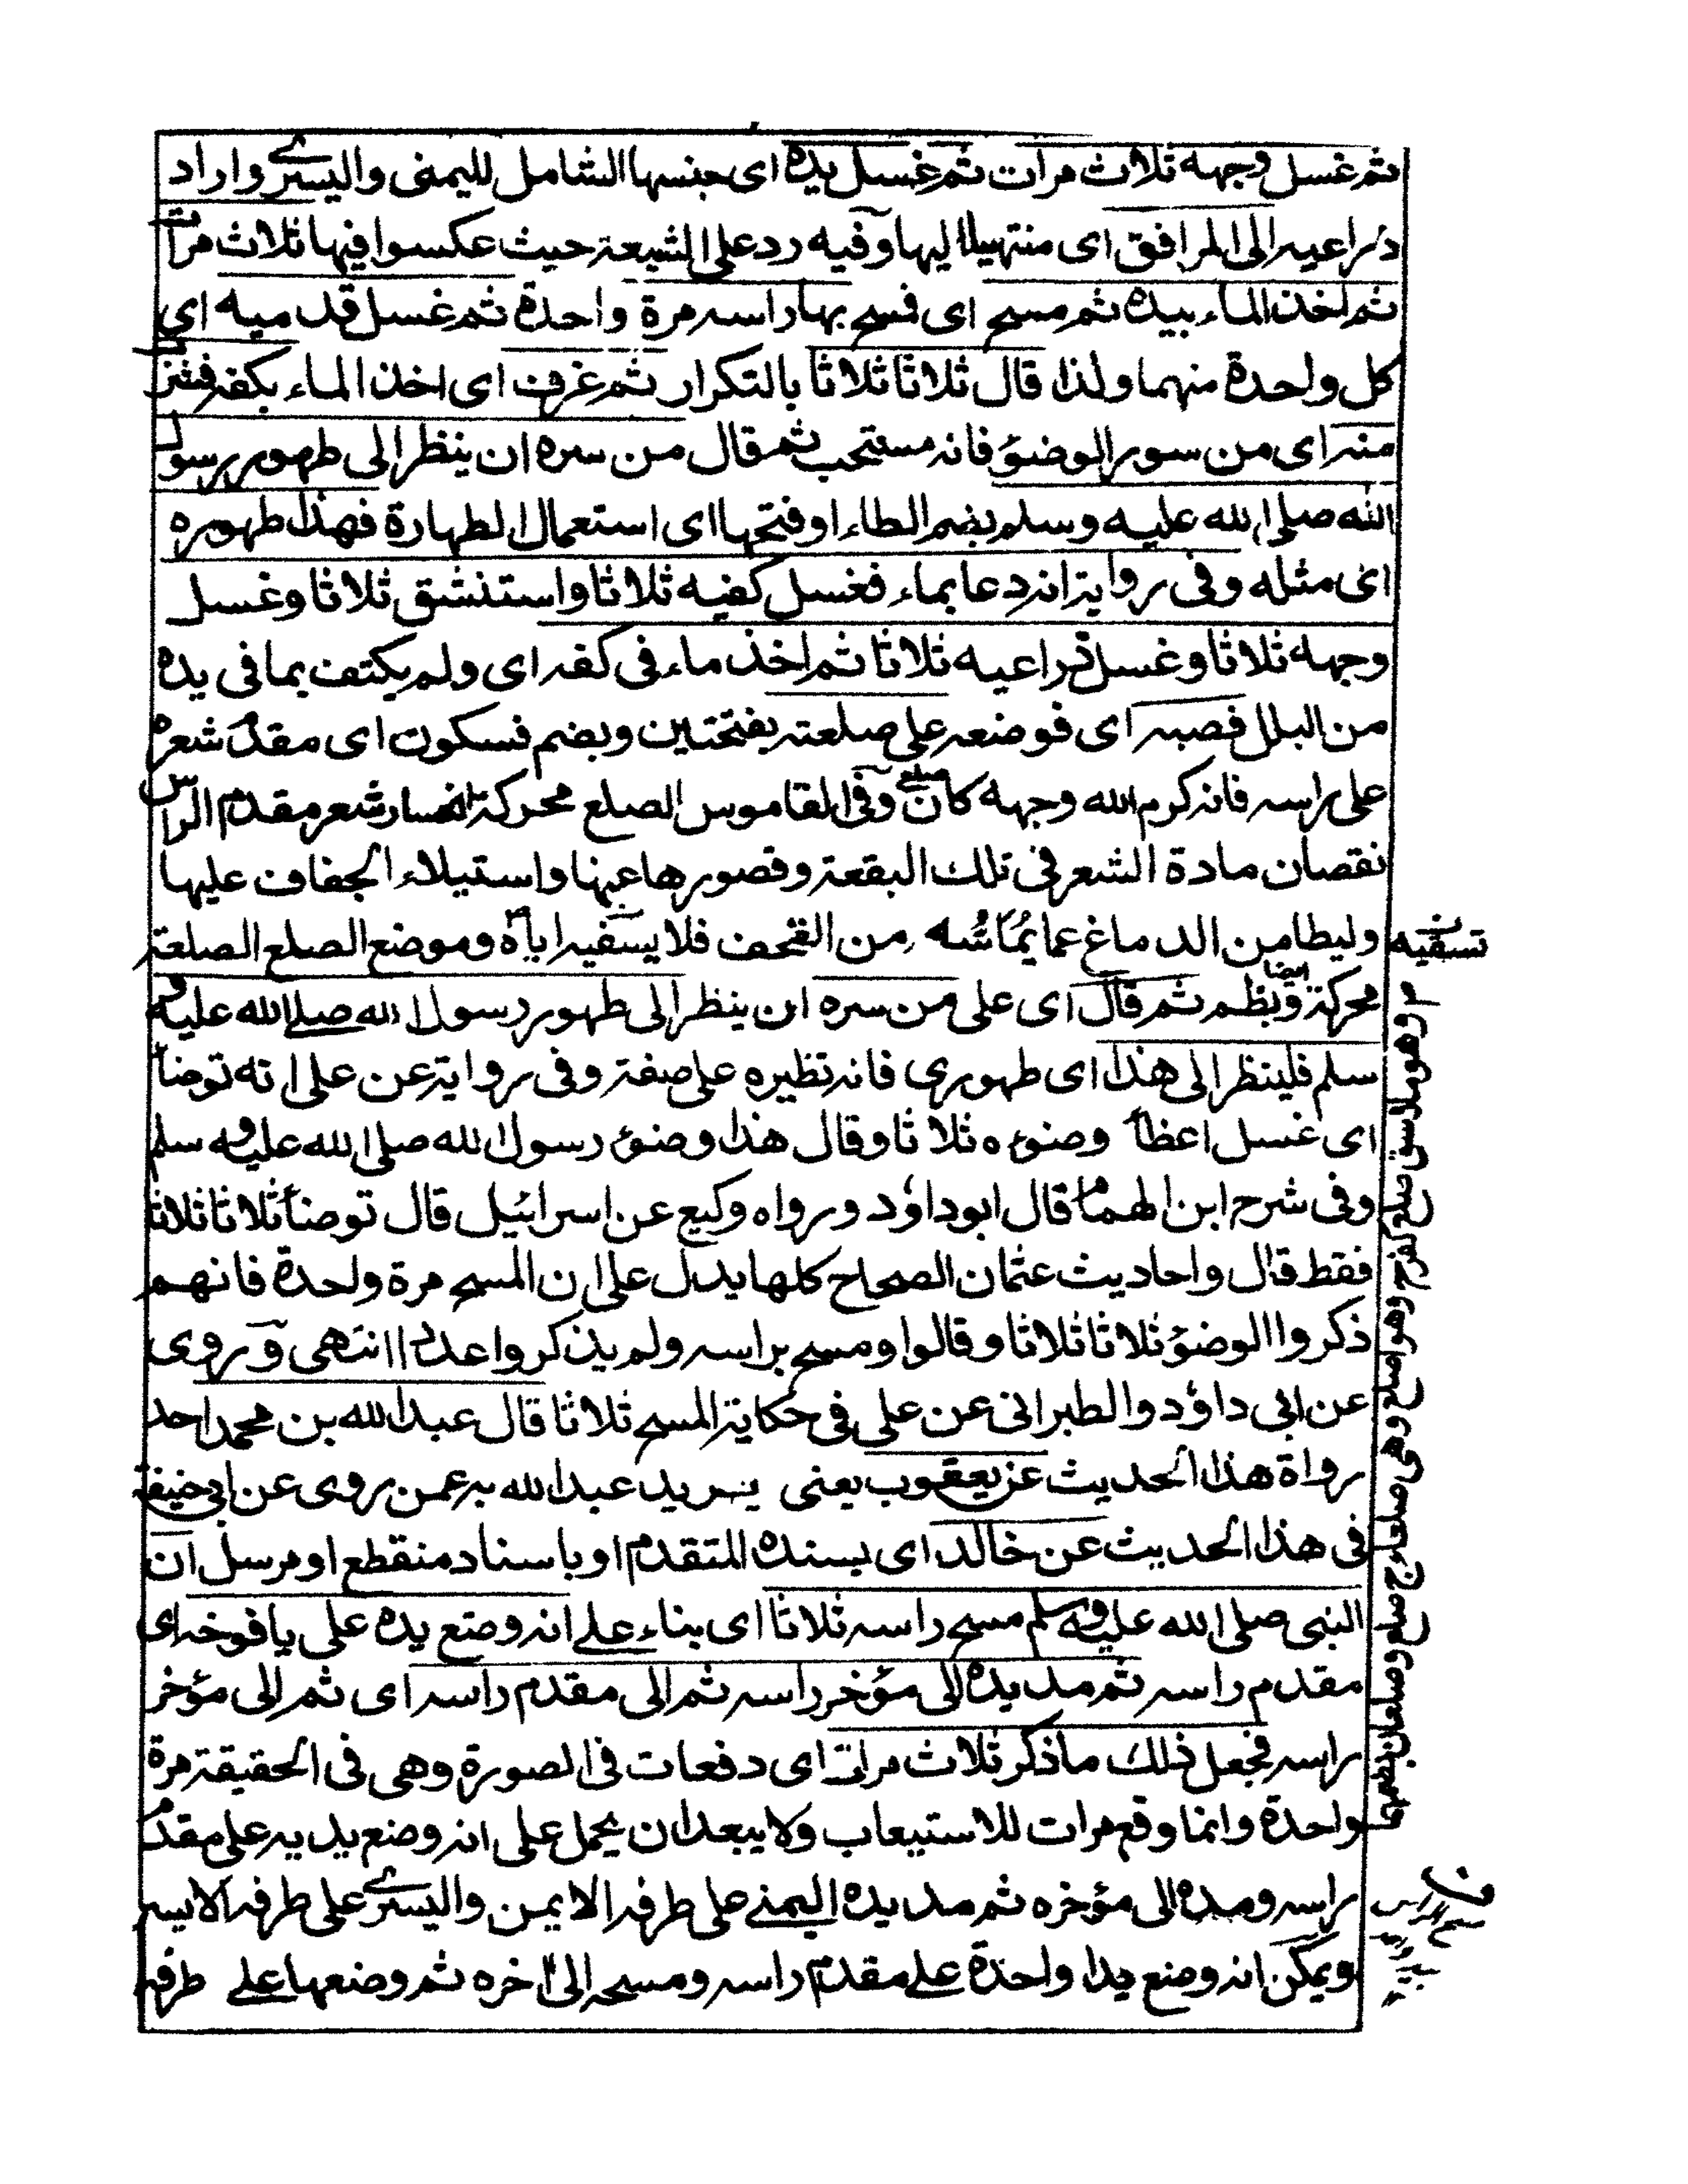 ثم غسل وجهه ثلاث مرات ثم غسل يده اى جنسها الشامل لليمنى واليسرے واراد
ذراعيه الى المرافق اى منتهيا اليها وفيه رد على الشيعة حيث عكسوا فيها ثلاث مرات
ثم اخذ الماء بيده ثم مسح اى فمسح بها راسه مرة واحدة ثم غسل قدميه اي
كل واحدة منهما ولذا قال ثلاثا ثلاثا بالتكرار ثم غرف اى اخذ الماء بكفه فشرب
منه اى من سور الوضوء فانه مستحب ثم قال من سره ان ينظر الى طهور رسول
الله صلى الله عليه وسلم بضم الطاء اوفتحها اى استعمال الطهارة فهذا طهوره
اى مثله وفى رواية انه دعا بماء فغسل كفيه ثلاثا واستنشق ثلاثا وغسل
وجهه ثلاثا وغسل ذراعيه ثلاثا ثم اخذ ماء فى كفه اى ولم يكتف بما فى يده
من البلل فصبه اى فوضعه على صلعته بفتحتين وبضم فسكون اى مقدم شعره
على راسه فانه كرم الله وجهه كان صلع وفى القاموس الصلع محركة انحسار شعر مقدم الراس
نقصان مادة الشعر فى تلك البقعة وقصورها عنها واستيلاء الجفاف عليها
وليطامن الدماغ عما يماسه من القحف فلا يسقيه اياه وموضع الصلع الصلعة
تسقيه
محركة وبضم ايضا ثم قال اى على من سره ان ينظر الى طهور رسول الله صلے الله عليه و
سلم فلينظر الى هذا اى طهورى فانه نظيره على صفته وفى رواية عن على انه توضأ
اى غسل اعضأ وضوءه ثلاثا وقال هذا وضوء رسول الله صلى الله عليه و سلم
وفى شرح ابن الهمام قال ابو داود ورواه وكيع عن اسرائيل قال توضأ ثلاثا ثلاثا
فقط قال واحاديث عثمان الصحاح كلها يدل على ان المسح مرة واحدة فانهم
ذكروا الوضوء ثلاثا ثلاثا وقالوا ومسح براسه ولم يذكروا عددا انتهى وروى
عن ابى داؤد والطبرانى عن على فى حكاية المسح ثلاثا قال عبد الله بن محمد احد
رواة هذا الحديث عن يعقوب يعنى يريد عبد الله به عمن روى عن ابى حنيفة
فى هذا الحديث عن خالد اى بسنده المتقدم او باسناد منقطع او مرسل ان
النبى صلى الله عليه و سلم مسح راسه ثلاثا اى بناء علے انه وضع يده على يافوخه اى
مقدم راسه ثم مد يده الى مؤخر راسه ثم الى مقدم راسه اى ثم الى مؤخر
راسه فجعل ذلك ماذكر ثلاث مرات اى دفعات فى الصورة وهى فى الحقيقة مرة
واحدة وانما وقع مرات للاستيعاب ولا يبعد ان يحمل على انه وضع يديه على مقدم
راسه ومده الى مؤخره ثم مد يده اليمنے على طرفه الايمن واليسرے على طرفه الايسر
ويمكن انه وضع يدا واحدة علے مقدم راسه ومسحه الى اخره ثم وضعها علے طرفه
صلع كفرح وهو اصلع وهى صلعاء ج صلع وصلعان بضمهما